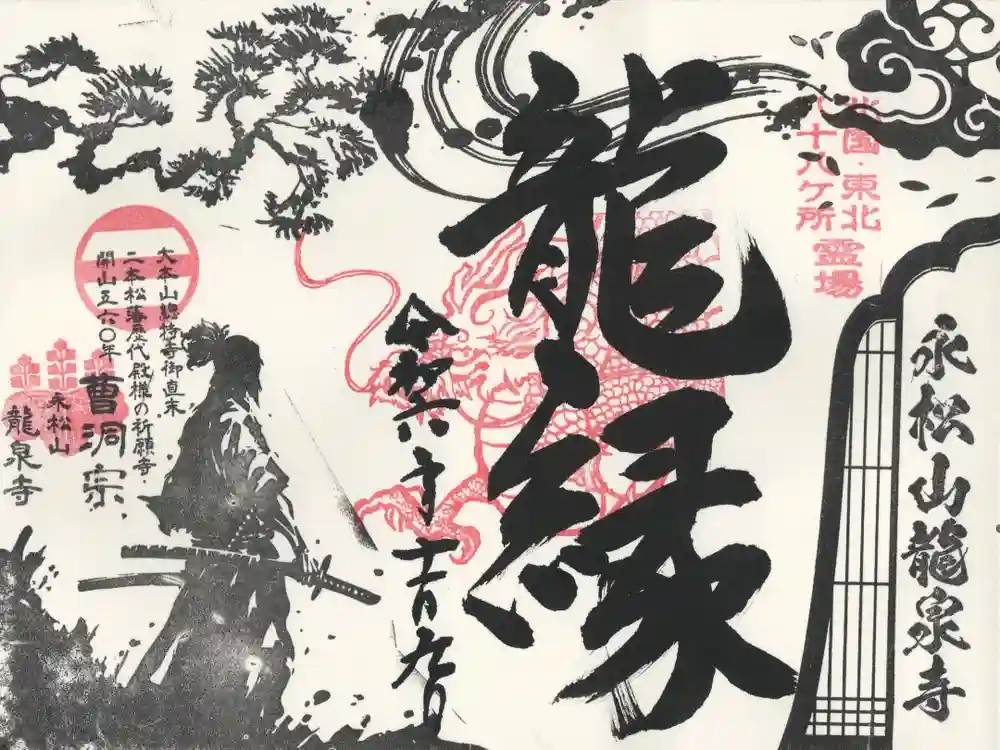 北国・東北
八十八ケ所
霊場
永松山龍泉寺
龍縁
令和六年十一月九日
大本山總持寺御直末
二本松藩歴代殿様の祈願寺・
開山五六〇年
曹洞宗
永松山
龍泉寺